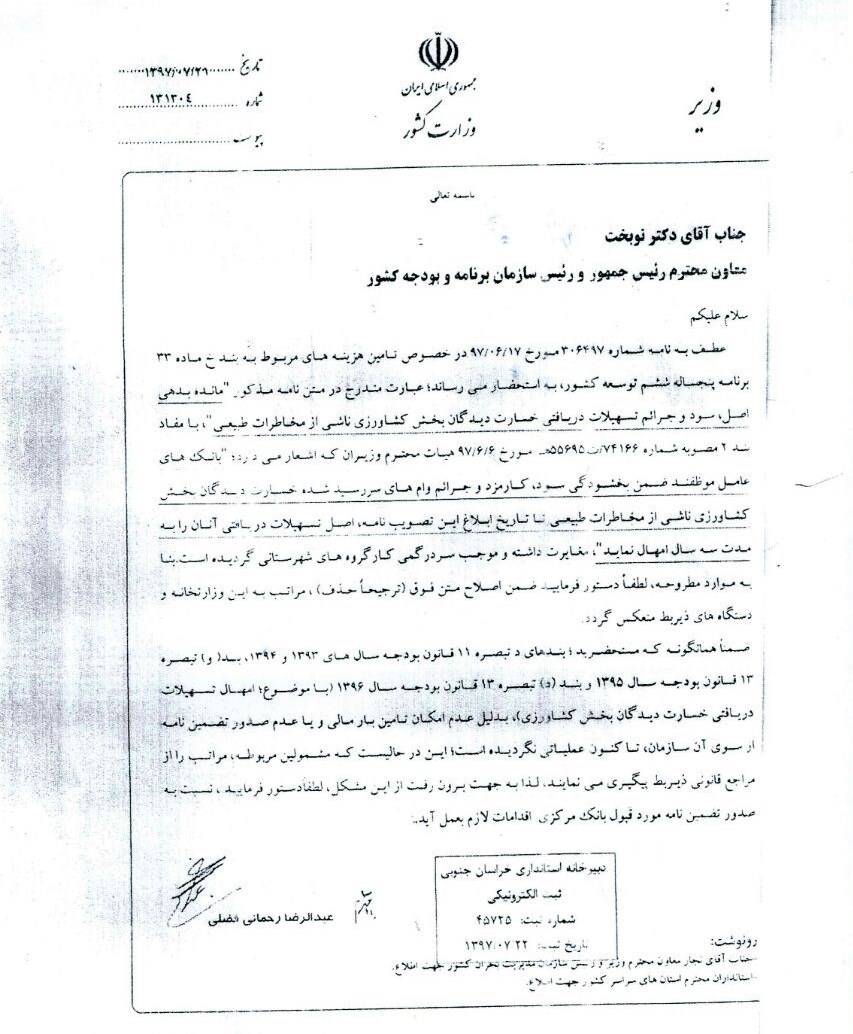 جمهوری اسلامی ایران
وزارت کشور
وزیر
تاریخ ۱۳۹۷/۰۷/۲۱
شماره ۱۳۱۳۰۴
پیوست
باسمه تعالی
جناب آقای دکتر نوبخت
معاون محترم رئیس جمهور و رئیس سازمان برنامه و بودجه کشور
سلام علیکم
عطف به نامه شماره ۳۰۶۴۹۷ مورخ ۹۷/۰۶/۱۷ در خصوص تامین هزینه های مربوط به بند خ ماده ۳۳
برنامه پنجساله ششم توسعه کشور، به استحضار می رساند؛ عبارت مندرج در متن نامه مذکور "مانده بدهی
اصل، سود و جرائم تسهیلات دریافتی خسارت دیدگان بخش کشاورزی ناشی از مخاطرات طبیعی"، با مفاد
بند ۲ مصوبه شماره ۷۴۱۶۶/ت۵۵۶۹۵هـ مورخ ۹۷/۶/۶ هیات محترم وزیران که اشعار می دارد؛ "بانک های
عامل موظفند ضمن بخشودگی سود، کارمزد و جرائم وام های سررسید شده خسارت دیدگان بخش
کشاورزی ناشی از مخاطرات طبیعی تا تاریخ ابلاغ این تصویب نامه، اصل تسهیلات دریافتی آنان را به
مدت سه سال امهال نماید"، مغایرت داشته و موجب سردرگمی کارگروه های شهرستانی گردیده است.بنا
به موارد مطروحه، لطفاً دستور فرمایید ضمن اصلاح متن فوق (ترجیحاً حذف)، مراتب به این وزارتخانه و
دستگاه های ذیربط منعکس گردد.
ضمناً همانگونه که مستحضرید؛ بندهای د تبصره ۱۱ قانون بودجه سال های ۱۳۹۳ و ۱۳۹۴، بند( و) تبصره
۱۳ قانون بودجه سال ۱۳۹۵ و بند (د) تبصره ۱۳ قانون بودجه سال ۱۳۹۶ (با موضوع؛ امهال تسهیلات
دریافتی خسارت دیدگان بخش کشاورزی)، بدلیل عدم امکان تامین بار مالی و یا عدم صدور تضمین نامه
از سوی آن سازمان، تا کنون عملیاتی نگردیده است؛ این در حالیست که مشمولین مربوطه، مراتب را از
مراجع قانونی ذیربط پیگیری می نمایند، لذا به جهت برون رفت از این مشکل، لطفاًدستور فرمایید ، نسبت به
صدور تضمن نامه مورد قبول بانک مرکزی اقدامات لازم بعمل آید..
عبدالرضا رحمانی فضلی
دبیرخانه استانداری خراسان جنوبی
ثبت الکترونیکی
شماره ثبت: ۴۵۷۲۵
تاریخ ثبت: ۱۳۹۷/۰۷/۲۲
رونوشت:
جناب آقای نجار معاون محترم وزیر و رئیس سازمان مدیریت بحران کشور جهت اطلاع.
استانداران محترم استان های سراسر کشور جهت اطلاع.